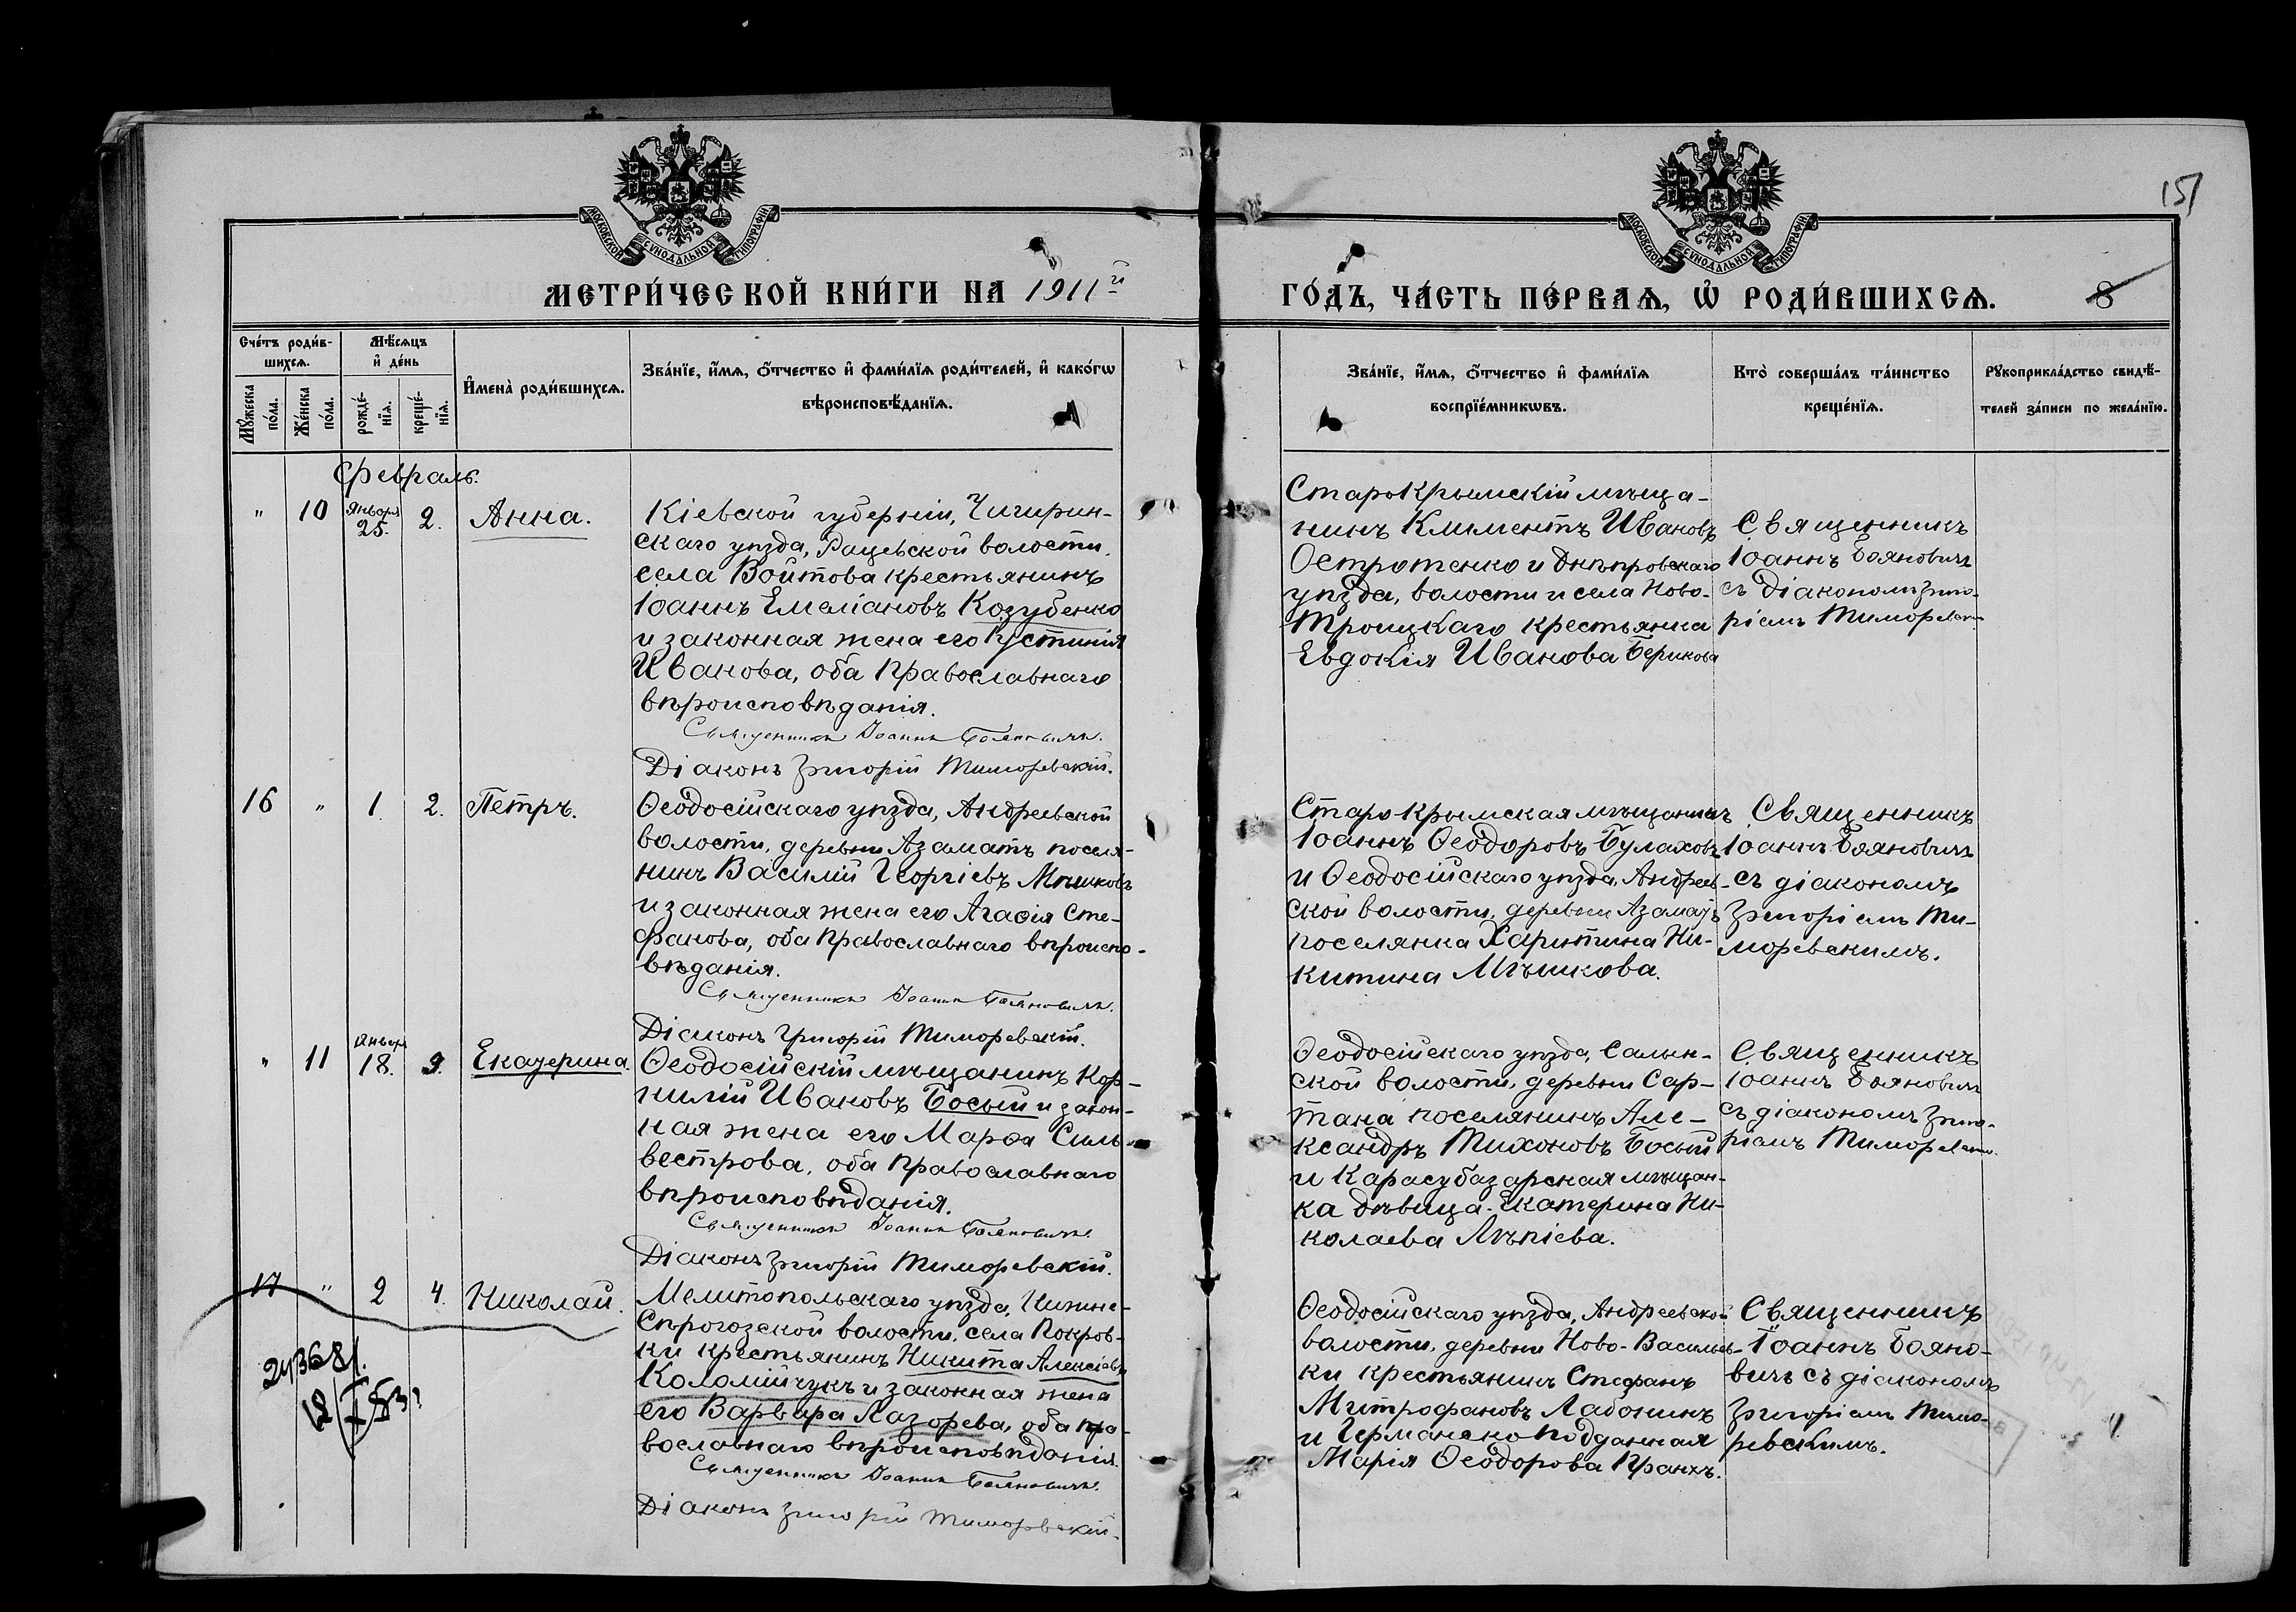 МОСКОВСКОЙ СѴНОДАЛЬНОЙ ТИПОГРАФІИ
МОСКОВСКОЙ СѴНОДАЛЬНОЙ ТИПОГРАФІИ
151
МЕТРИ́ЧЕСКОЙ КНИ́ГИ НА 1911й
ГО́ДЪ, ЧА́СТЬ ПЕ́РВАѦ, Ѡ҆ РОДИ́ВШИХСѦ.
8
Сче́тъ роди́в-
шихсѧ.
Мꙋ́жеска
по́ла.
Же́нска
по́ла.
Мѣ́сѧцъ
и҆ де́нь
рожде́-
нїѧ.
креще́-
нїѧ.
И҆мена̀ роди́вшихсѧ.
Зва́нїе, и҆́мѧ, ѻ҆́тчество и҆ фами́лїѧ роди́телей, и҆ како́гѡ
вѣроисповѣ́данїѧ.
Зва́нїе, и҆́мѧ, ѻ҆́тчество и҆ фами́лїѧ
воспрїе́мникѡвъ.
Кто̀ соверша́лъ та́инство
креще́нїѧ.
Рꙋкоприкла́дство свидѣ́-
телей за́писи по жела́нїю.
Февраль.
" 10 января 25. 2. Анна.
Кіевской губерніи, Чигирин-
скаго уѣзда, Рацевской волости,
села Войтова крестьянинъ
Іоаннъ Емеліановъ Козубенко
и законная жена его Іустинія
Иванова, оба Православнаго
вѣроисповѣданія.
Священникъ Іоаннъ Бояновичъ.
Діаконъ Григорій Тиморевскій.
СтароКрымскій мѣща-
нинъ Климентъ Ивановъ
Остротенко и Днѣпровскаго
уѣзда, волости и села Ново-
Троицкаго крестьянка
Евдокія Иванова Берикова
Священникъ
Іоаннъ Бояновичъ
съ Діакономъ Григо-
ріемъ Тиморевским
16 " 1. 2. Петръ.
Ѳеодосійскаго уѣзда, Андреевской
волости, деревни Азаматъ поселя-
нинъ Василій Георгіевъ Мѣшковъ
и законная жена его Агаѳія Сте-
фанова, оба Православнаго вѣроиспо-
вѣданія.
Священникъ Іоаннъ Бояновичъ.
Діаконъ Григорій Тиморевскій.
Старокрымская мѣщанинъ
Іоаннъ Ѳеодоровъ Булаховъ
и Ѳеодосійскаго уѣзда, Андреев-
ской волости, деревни Азаматъ
поселянка Харитина Ни-
китина Мѣшкова.
Священникъ
Іоаннъ Бояновичъ
съ діакономъ
Григоріемъ Ти-
моревскимъ.
" 11 января 18. 3. Екатерина.
Ѳеодосійскій мѣщанинъ Кор-
нилій Ивановъ Босый и закон-
ная жена его Марѳа Силь-
вестрова, оба Православнаго
вѣроисповѣданія.
Священникъ Іоаннъ Бояновичъ.
Діаконъ Григорій Тиморевскій.
Ѳеодосійскаго уѣзда, Салын-
ской волости, деревни Сар-
тана поселянинъ Але-
ксандръ Тихоновъ Босый
и Карасубазарская мѣщан-
ка дѣвица Екатерина Ни-
колаева Лѣпіева.
Священникъ
Іоаннъ Бояновичъ
съ діакономъ Григо-
ріемъ Тиморевским.
17 " 2 4. Николай.
Мелитопольскаго уѣзда, Нижне-
Сѣрогозской волости, села Покров-
ки крестьянинъ Никита Алексіевъ
Коломійчукъ и законная жена
его Варвара Лазорева, оба Пра-
вославнаго вѣроисповѣданія.
Священникъ Іоаннъ Бояновичъ.
Діаконъ Григорій Тиморевскій.
Ѳеодосійскаго уѣзда, Андреевской
волости, деревни Ново-Васильев-
ки крестьянинъ Стефанъ
Митрофановъ Лабонинъ
и Германско подданная
Марія Ѳеодорова Пранхъ.
Священникъ
Іоаннъ Бояно-
вичъ съ діакономъ
Григоріемъ Тимо-
ревскимъ.